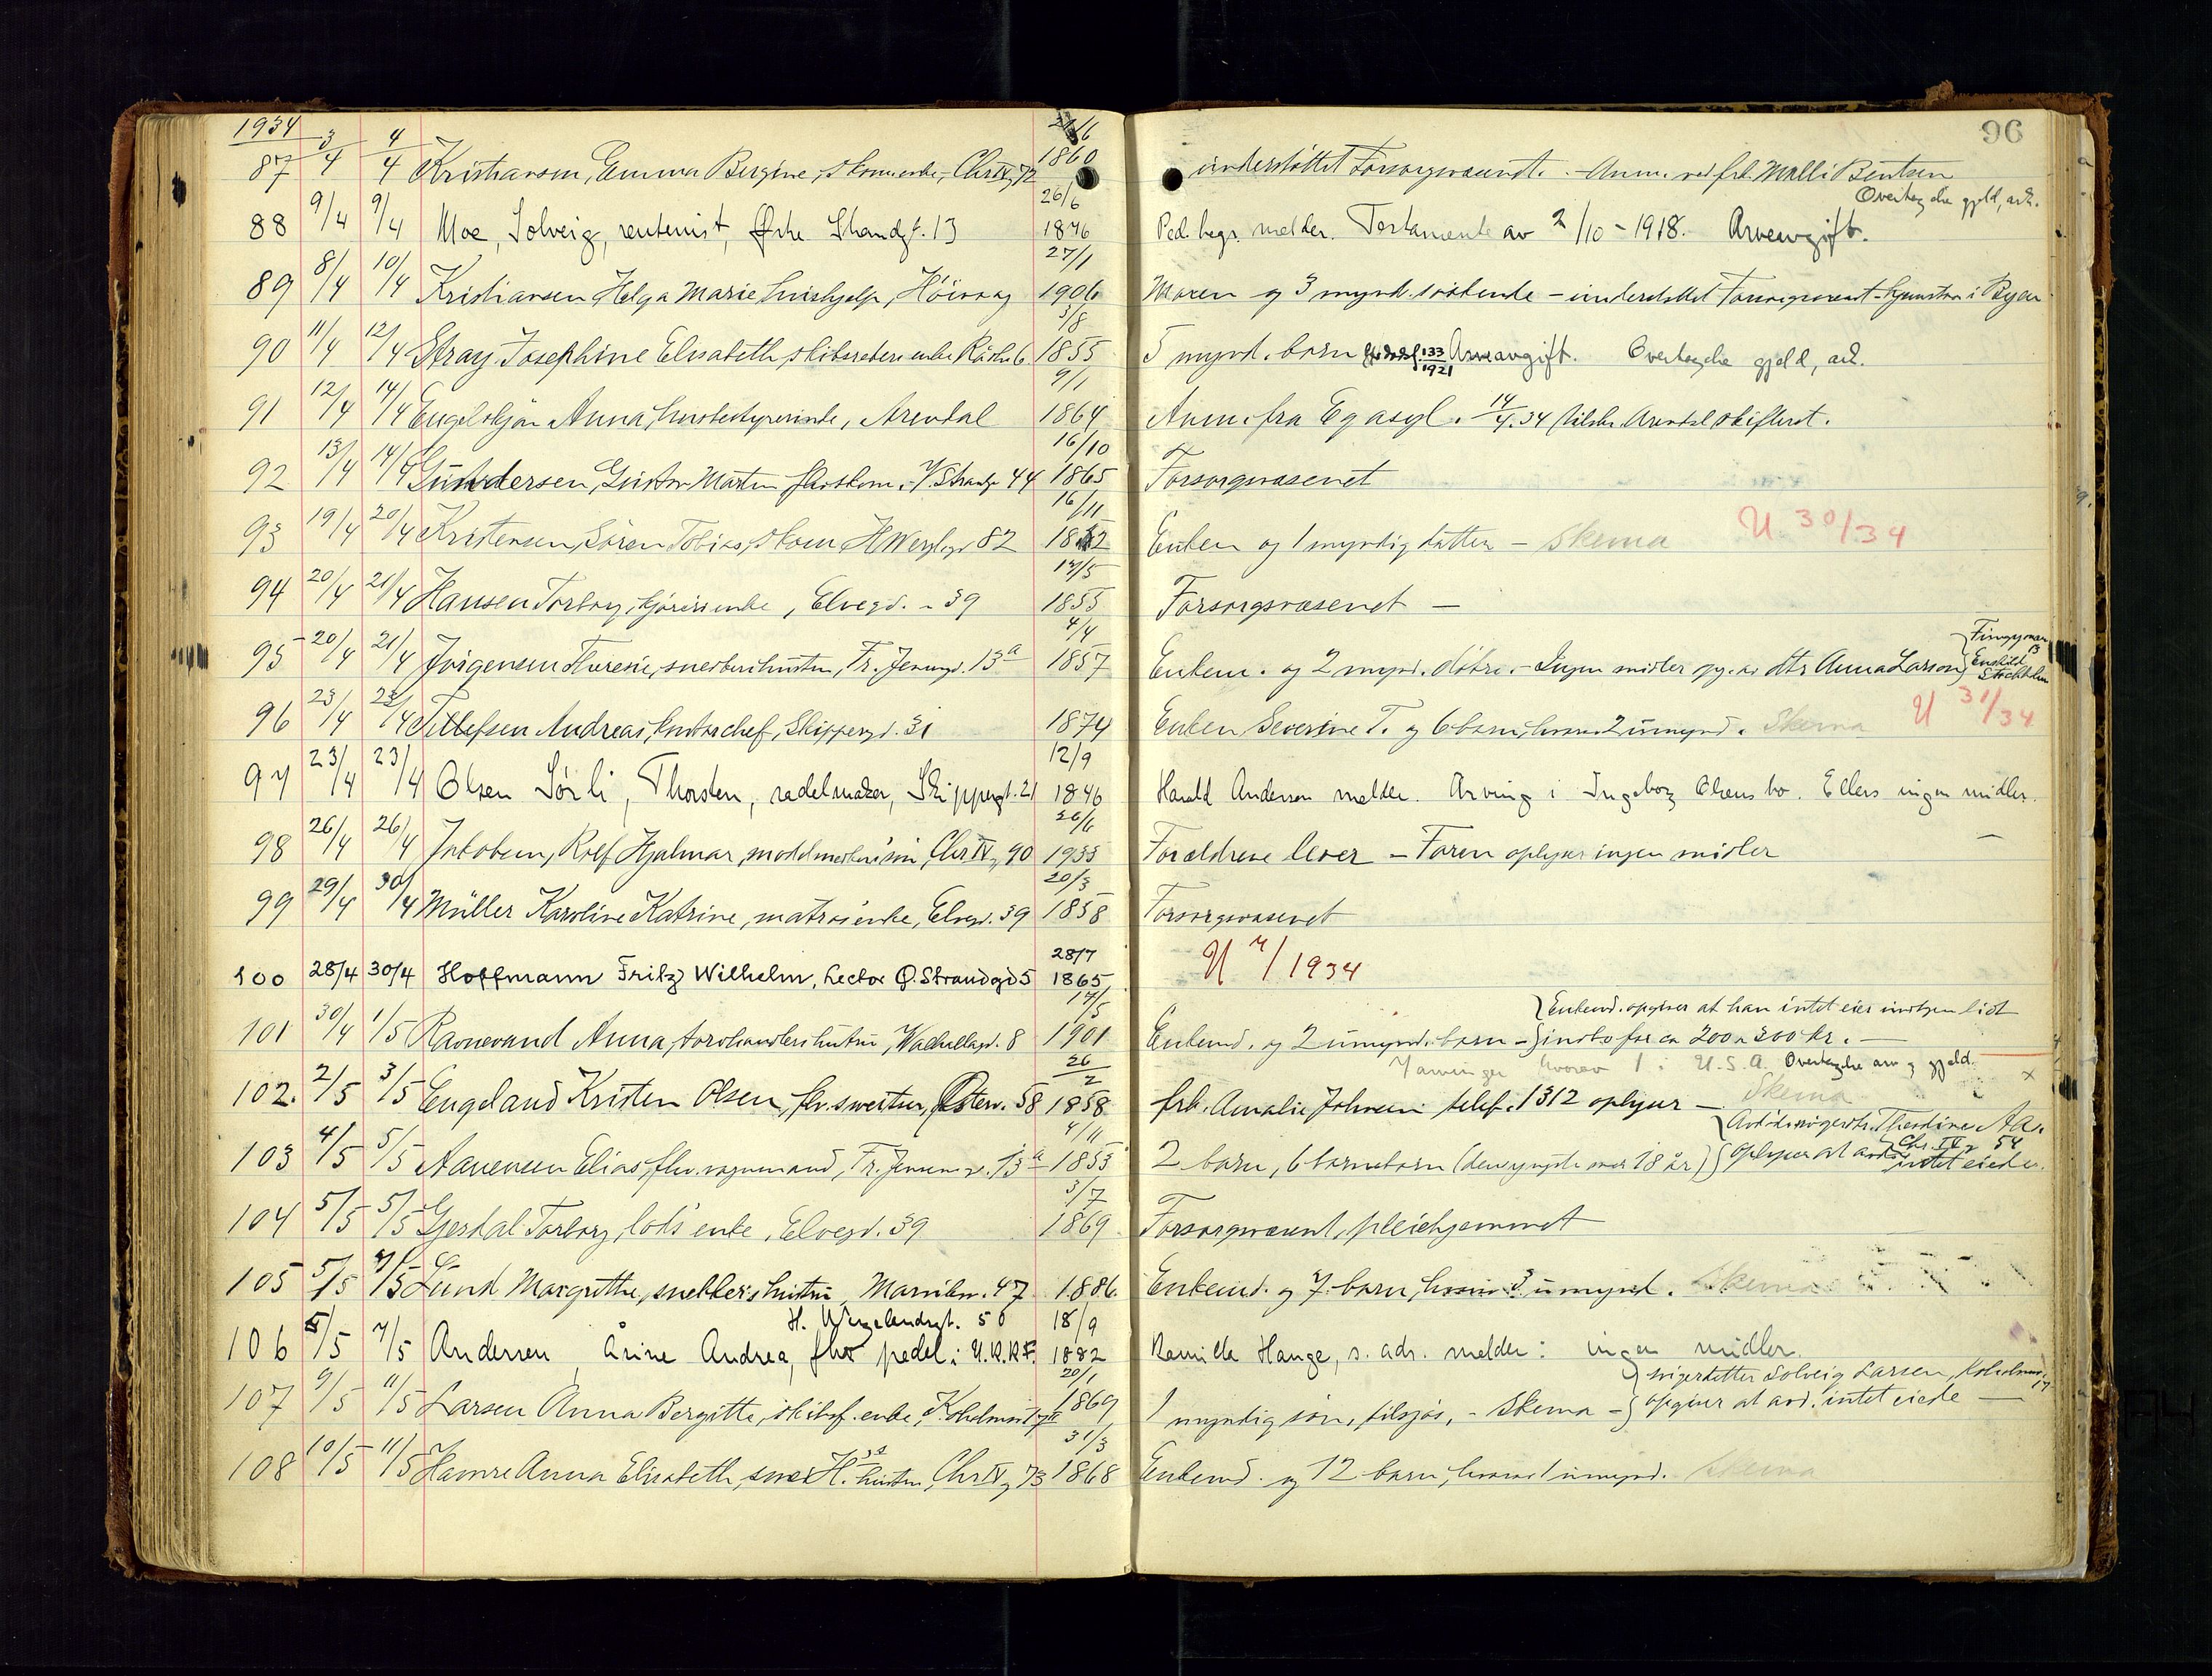 1934 96
87 3/4 4/4 Kristiansen, Emma Bergine, skom.enke, Chr IVg 72 1860 understøttet Forsorgsvæsenet. - Anm. ved frk. Malli Bentsen
88 9/4 9/4 Moe, Solveig, rentenist, Østre Strandgt. 13 26/6 1876 Ped. begr. melder. Testamente av 2/10 - 1918. Arveavgift. Overtagelse gjeld, ark.
89 8/4 10/4 Kristiansen Helga Marie hushjelp, Höivaag 27/1 1906 Moren og 3 mynd. søskende - understøttet Forsorgsvæsenet - hjemstavn i Byen
90 11/4 12/4 Stray Josephine Elisabeth, skibsrederenke Rådhs 6. 3/8 1855 5 mynd. barn 133/1921 Arveavgift. Overtagelse gjeld, ark.
91 12/4 14/4 Engelskjøn Anna, husbestyrerinde, Arendal 9/1 1864 Anm. fra Eg asyl. 14/4.34 tilskr. Arendal skifteret.
92 13/4 14/4 Gundersen, Gustav Martin fhv skom. V. Strandg 44 16/10 1865 Forsorgsvæsenet
93 19/4 20/4 Kristensen, Sören Tobias, skom H Wergelgd 82 16/11 Enken og 1 myndig datter - Skema U. 30/34
94 20/4 21/4 Hansen Torborg, enke, Elvegd. - 39 17/5 1855 Forsorgsvæsenet -
95 20/4 21/4 Jörgensen Theresie, snekkerhustru, Fr. Jensengd. 13a 4/4 1857 Enkem. og 2 mynd. døtre. - Ingen midler opg. av dtr Anna Larson Enskild 13 Stockholm
96 23/4 23/4 Tellefsen Andreas, kontorchef, Skippergd. 31 1874 Enken Severine T. og 6 barn, hvorav 2 umynd. Skema U 31/34
97 23/4 23/4 Olsen Sørli, Thorsten, sadelmaker, Skippergt. 21 12/9 1846 Harald Andersen melder. Arving i Ingeborg Olsens bo. Ellers ingen midler.
98 26/4 26/4 Jakobsen, Rolf Hjalmar, söön, Chr IVg 90 26/6 1933 Forældrene lever - Faren oplyser ingen midler -
99 29/4 30/4 Müller Karoline Katrine, matrosenke, Elvegd. 39 20/3 1858 Forsorgsvæsenet
100 28/4 30/4 Hoffmann Fritz Wilhelm, Lector Ø. Strandgd 5 28/7 1865 U 7/1934
101 30/4 1/5 Ravnevand Anna, hustru, Wachellsgd. 8 17/5 1901 Enkemd. og 2 umynd. barn - Enkemd. opgiver at han intet eier undtagen lidt indbo for ca 200 a 300 kr. -
102. 2/5 3/5 Engeland Kristen Olsen, fhv. Østerv. 58 26/2 1858 frk. Amalie Johnsen telef. 1312 oplyser - Skema arvinger hvorav 1 i U.S.A. Overtagelse arv og gjeld. x
103 4/5 5/5 Aanensen Elias, fhv. vognmand, Fr. Jensensgd. 13a 4/11 1855 2 barn, 6 barnebarn (den yngste over 18 år) Avdødes svigerdtr. Theodine Aa. Chr. IVg 54 oplyser at avd. intet eiede.
104 5/5 5/5 Gjerdal Torborg, lods' enke, Elvegd. 39 3/7 1869 Forsorgsvæsent, pleiehjemmet
105 5/5 7/5 Lund Margrethe, snekkers hustru, Marvikv. 47 1886 Enkemd. og 7 barn, hvorav 3 umynd. Skema
106 5/5 7/5 Andersen, Åsine Andrea, fhv pedel i U.K.K.F. H. Wergelandsgt. 50 18/9 1882 Kamilla Hauge, s. adr. melder: ingen midler.
107 9/5 11/5 Larsen Anna Bergitte, skibsf. enke, Kholmen 17a 20/1 1869 1 myndig søn, tilsjøs, - Skema - svigerdatter Solveig Larsen, Kholmen 17 opgiver at avd. intet eiede -
108 10/5 11/5 Hamre Anna Elisabeth, hustru, Chr IVg 73 31/3 1868 Enkemd. og 12 barn, hvorav 1 umynd. Skema